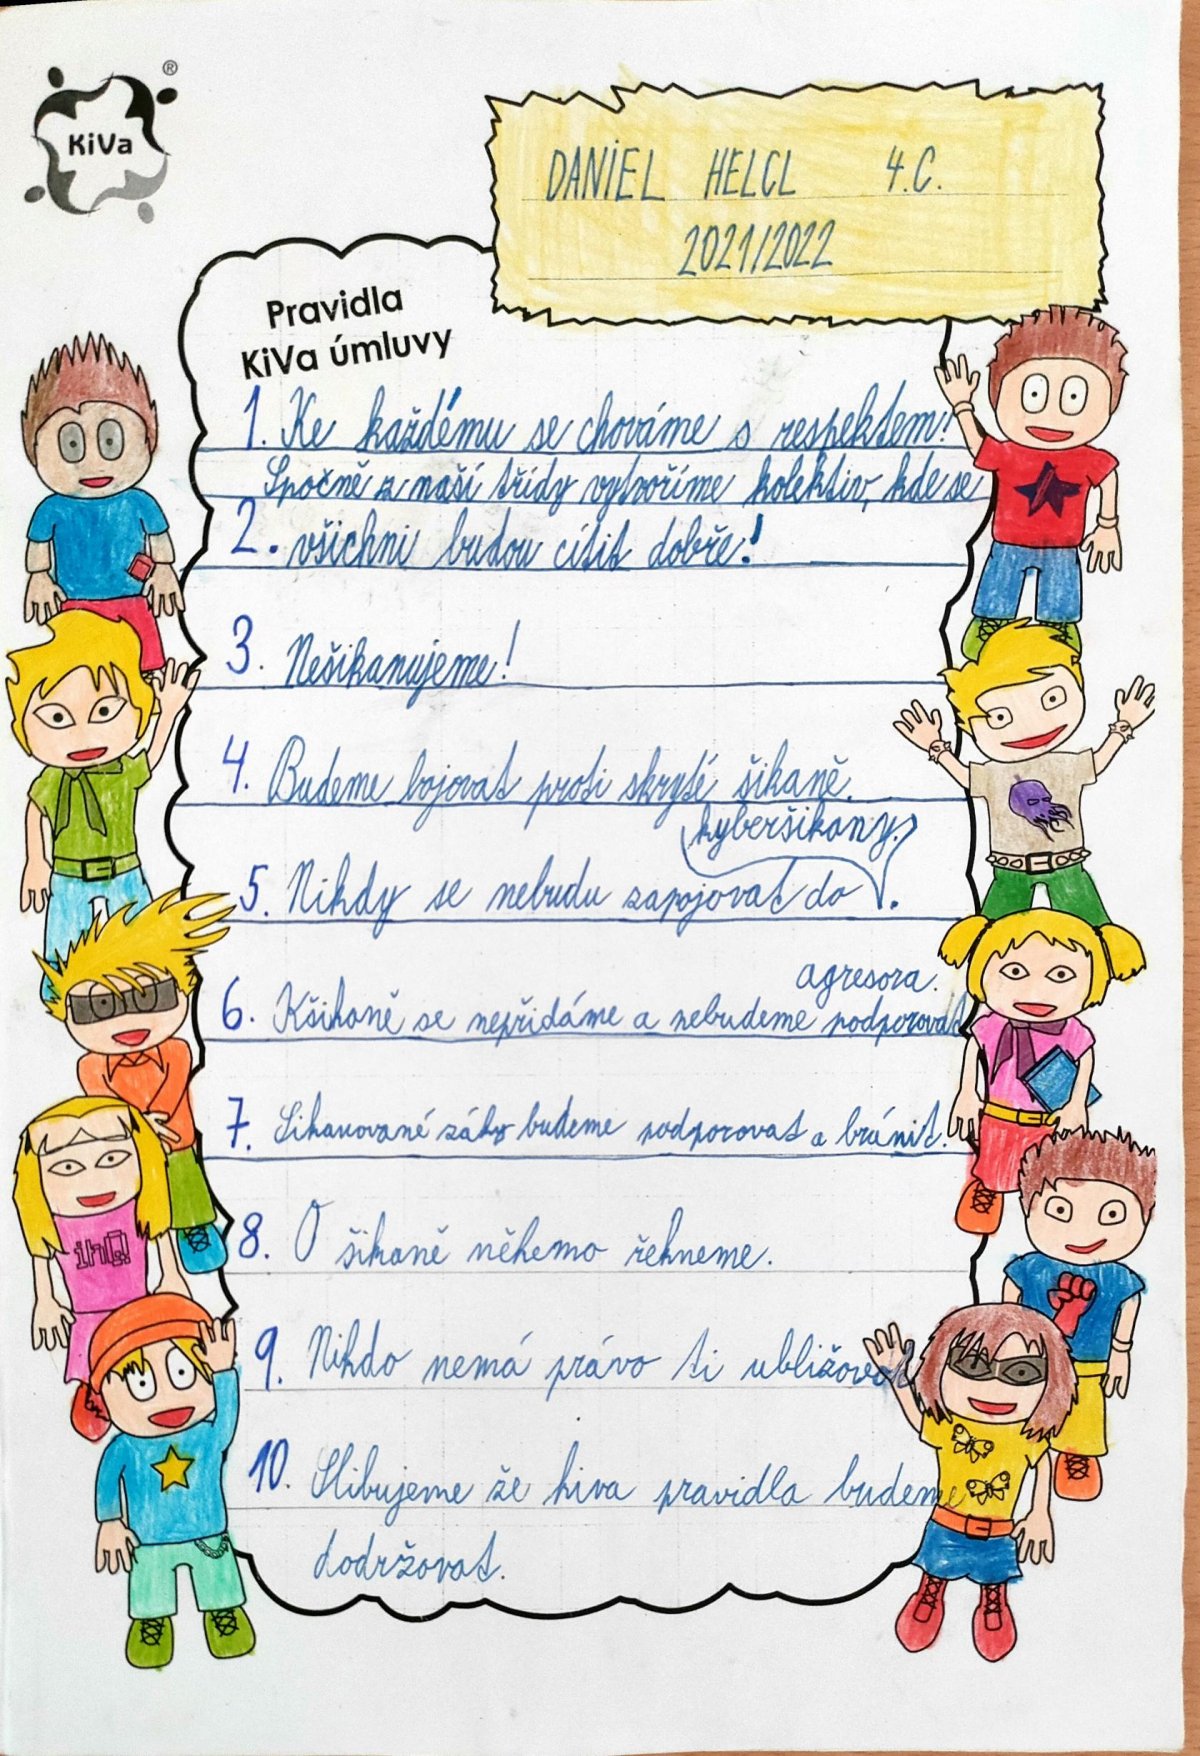 KiVa ®
DANIEL HELCL 4.C.
2021/2022
Pravidla
KiVa úmluvy
1. Ke každému se chováme s respektem!
Spočně z naší třídy vytvoříme kolektiv, kde se
2. všichni budou cítit dobře!
3. Nešikanujeme!
4. Budeme bojovat proti skryté šikaně.
kyberšikany.
5. Nikdy se nebudu zapojovat do .
agresora.
6. Kšikaně se nepřidáme a nebudeme podporovat
7. Šikanované žáky budeme podporovat a bránit.
8. O šikaně někemo řekneme.
9. Nikdo nemá právo ti ubližovat
10. Slibujeme že kiva pravidla budeme
dodržovat.